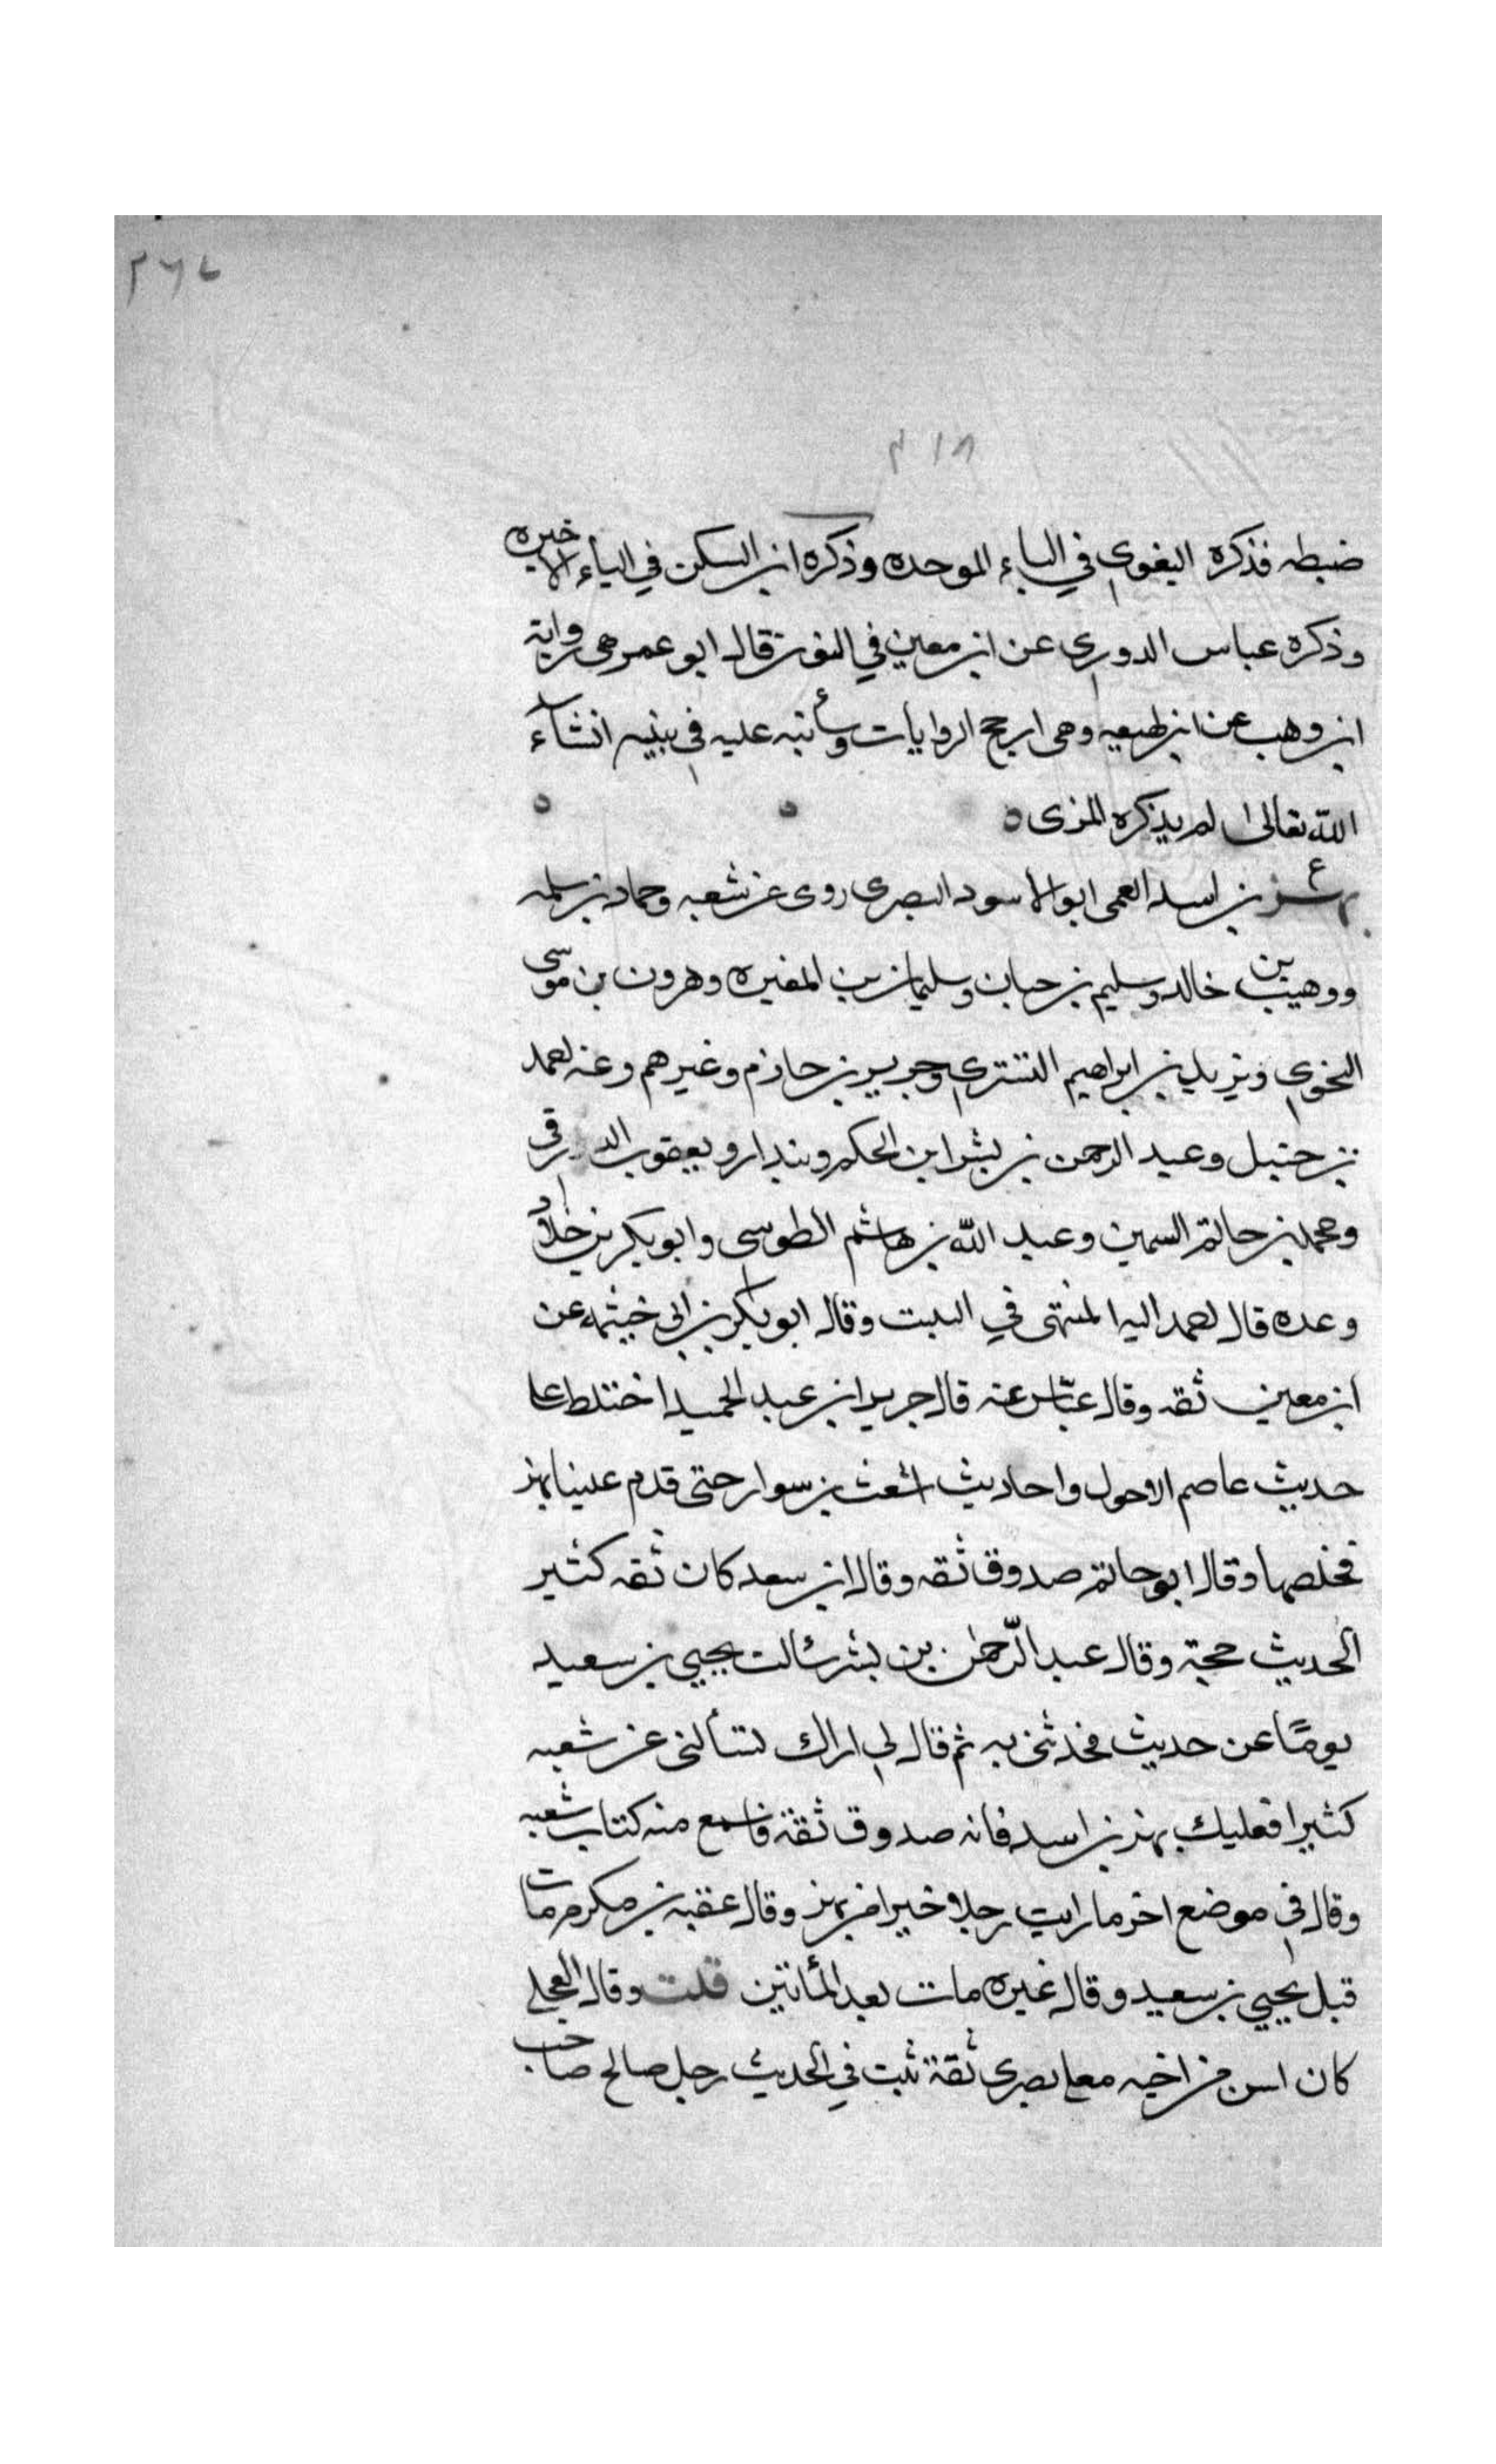 ٢٦٧
٢١٨
ضبطه فذكره البغوي في الباء الموحده وذكره ابن السكن في الياء الاخيره
وذكره عباس الدوري عن ابن معين في النون قال ابو عمر وهى رواية
ابن وهب عن ابن لهيعه وهى ارجح الروايات وسأنبه عليه في بنيه انشاء
الله تعالى لم يذكره المزى ه ه ه
ع بهز بن اسد العمى ابو الاسود البصرى روى عن شعبه وحماد بن سلمه
ووهيب بن خالد وسليم بن حبان وسليمان بن المغيره وهرون بن موسى
النحوي ويزيد بن ابراهيم التسترى وجرير بن حازم وغيرهم وعنه احمد
بن حنبل وعبد الرحمن بن بشر ابن الحكم وبندار ويعقوب الدورقى
ومحمد بن حاتم السمين وعبد الله بن هاشم الطوسى وابو بكر بن خلاد
وعده قال احمد اليه المنتهى في التثبت وقال ابو بكر بن ابى خيثمه عن
ابن معين ثقه وقال عباس عنه قال جرير ابن عبد الحميد اختلط على
حديث عاصم الاحول واحاديث اشعث بن سوار حتى قدم علينا بهز
فخلصها وقال ابو حاتم صدوق ثقه وقال ابن سعد كان ثقه كثير
الحديث حجة وقال عبد الرّحمن بن بشر سئالت يحيي بن سعيد
يومًا عن حديث فحدثنى به ثم قال لى اراك تسألنى عن شعبه
كثيرا فعليك بهز بن اسد فانه صدوق ثقة فاسمع منه كتاب شعبه
وقال في موضع اخر ما رايت رجلا خيرا من بهز وقال عقبه بن مكرم مات
قبل يحيي بن سعيد وقال غيره مات بعد المأتين قلت وقال العجلى
كان اسن من اخيه معلى بصرى ثقة ثبت في الحديث رجل صالح صاحب